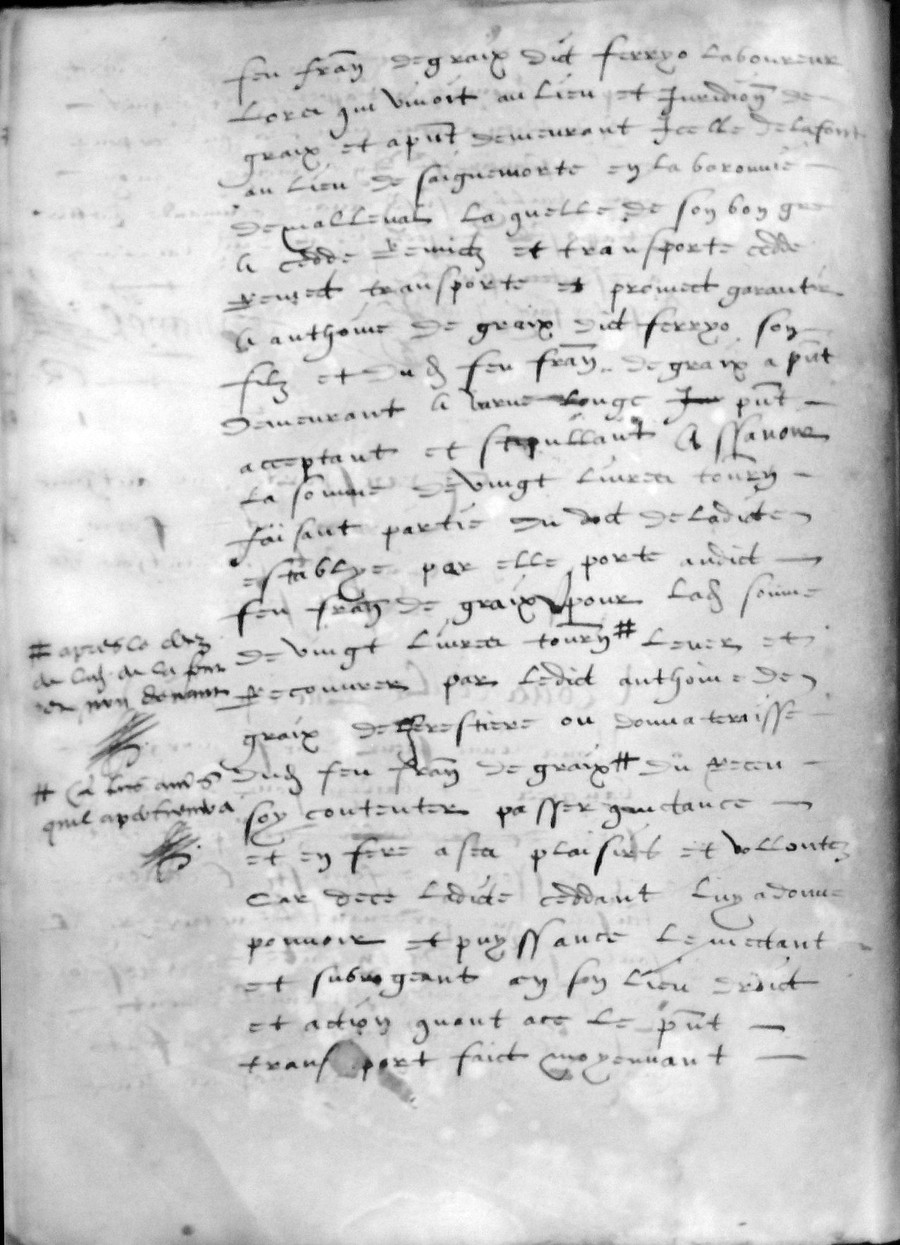 feu frãn degraix dict ferryo laboureur
Lors qui vivoit au lieu et Juridiõn de
graix et a pñt demeurant Icelle delafont
au lieu de saignemorte en la baronnie
de malleval laquelle de son bon gre
A cedde Remictz et transporte cedde
Remect transporte et promect garantir
A anthoine de graix dict ferryo son
filz et dud feu frãn de graix a pñt
demeurant A rouge pñt
acceptant et stipullant A ssavoir
La somme de vingt livres tourn
faisant partie du dot de ladicte
establye par elle porte audict
feu frãn de graix pour lad somme
de vingt livres tourn # lever et
Recouvrer par ledict anthoine de
graix de ou
dud feu frãn de graix # du Receu
soy contenter passer quictance
et en fere a ses plaisirs et vollontez
Car dece ladicte ceddant luy a donne
pouvoir et puyssance le mectant
et subrogeant en son lieu droict
et action quant ace le pñt
transport faict moyennant
# apres le decz
de lad de la font
et non devant
#
quil apartiendra